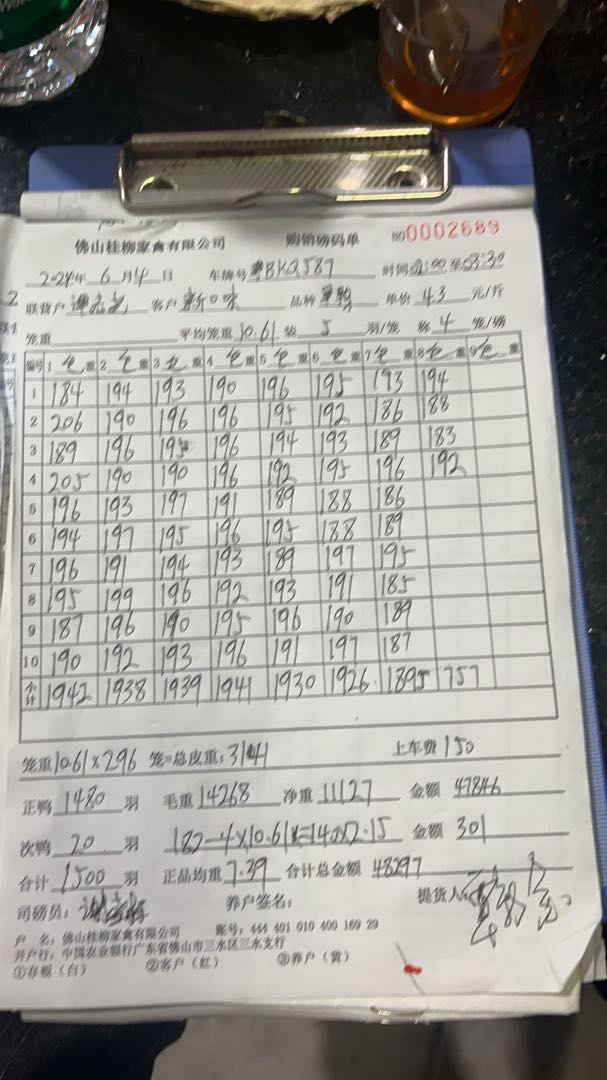 佛山桂柳家禽有限公司 购销磅码单 №0002689
2024年 6月4日 车牌号 粤BKQ587 时间 至 03:30
联营户 客户 新口味 品种 单价 4.3 元/斤
笼重 平均笼重 10.61 装 5 羽/笼 称 4 笼/磅
编号 1 毛 重 2 毛 重 3 毛 重 4 毛 重 5 毛 重 6 毛 重 7 毛 重 8 毛 重 9 毛 重
1 184 194 193 190 196 195 193 194
2 206 190 196 196 195 192 186 188
3 189 196 195 196 194 193 189 183
4 205 190 190 196 192 195 196 192
5 196 193 197 191 189 188 186
6 194 197 195 196 195 188 189
7 196 191 194 193 189 197 195
8 195 199 196 192 193 191 185
9 187 196 190 195 196 190 189
10 190 192 193 196 191 197 187
小计 1942 1938 1939 1941 1930 1926 1895 757
笼重 10.61×296 笼=总皮重: 3141 上车费 150
正鸭 1480 羽 毛重 14268 净重 11127 金额 47846
次鸭 20 羽 182-4×10.61=140×2.15 金额 301
合计 1500 羽 正品均重 7.39 合计总金额 48297
司磅员: 养户签名: 提货人:
户 名: 佛山桂柳家禽有限公司 账号: 444 401 010 400 169 29
开户行: 中国农业银行广东省佛山市三水区三水支行
①存根(白) ②客户(红) ③养户(黄)